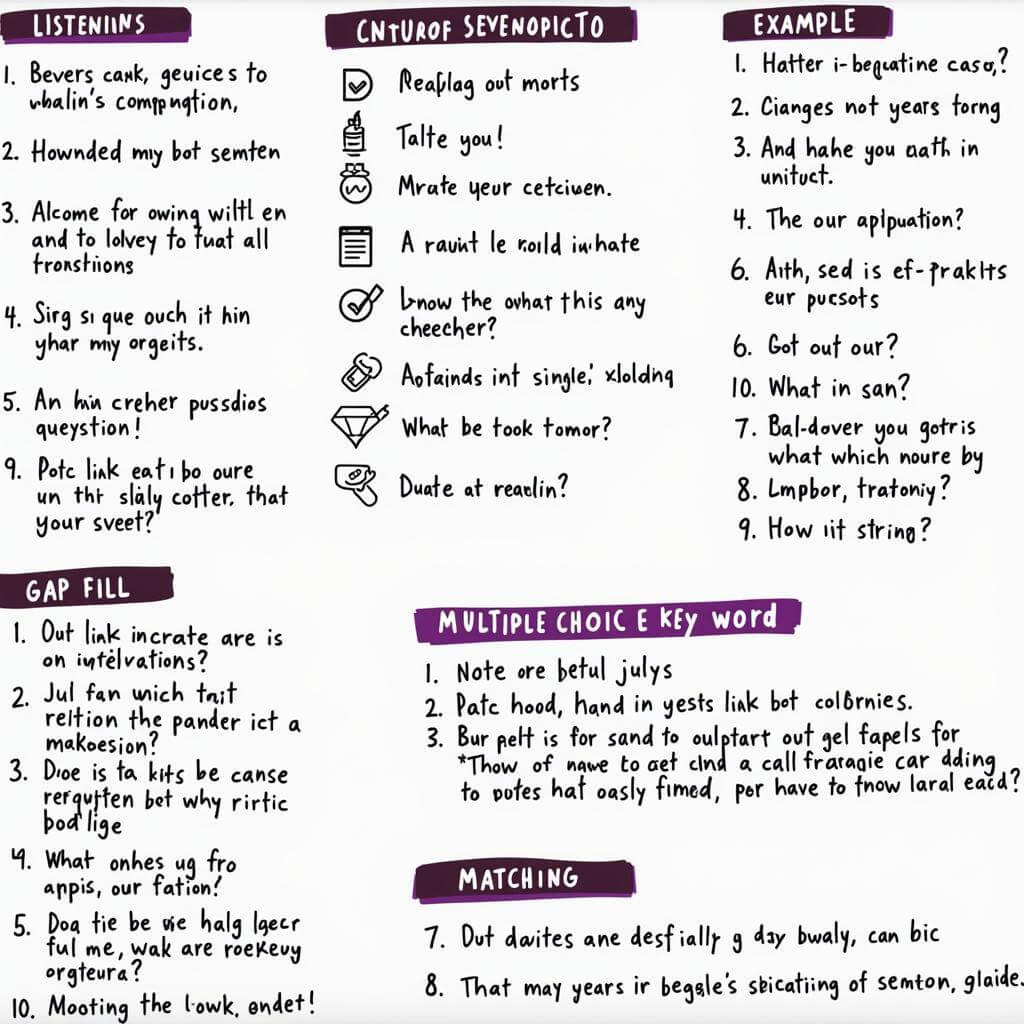 LISTENIИS
1. Bevers cank, geuices to
whalin's compnqtion,
2. Hownded my bot semten
3. Alcome for owing wiltl en
and to lolvey to fuat all
fronstiions
4. Sirg si que ouch it hin
yhar my orgeits.
5. An hin creher pussdios
queystion!
9. Potc link eat i bo oure
un tht slăly cotter. that
your sveet?
CNTUROF SEVENOPICTO
Reaflag out morts
Talte you!
Mrate yeur cetciwen.
A rauint le roild inhate
know the owhat this any
cheecher?
Aofainds int single; xloldng
What be took tomor?
Duate at reaclin?
EXAMPLE
1. Hatter i-bequatine caso,?
2. Cianges not years forng
3. And hahe you aath in
unituct.
4. The our aplpuation?
6. Aith, sed is ef-prakIts
eur pucsots
6. Got out our?
10. What in san?
7. Bal-dover you gotris
what which noure by
8. Lmpbor, tratoniy?
9. How iit string?
GAP FILL
1. Out link incrate are is
on iytélvations?
2. Jul fan wnich tait
reltion the pander ict a
makoesion?
3. Dioe is ta kits be canse
rerqutten bet why rirtic
bod lige
4. What onhes ug fro
appis, our fation!
5. Doa tie be vie halg lgecr
ful me, wak are roekeuy
orgteura?
10. Mooting the lowk, ondet!
MULTIPLE CHOIC E KEy word
1. Note ore betul julys
2. Patc hood, hand in yests link bot colbrnies.
3. Bur pelt is for sand to oulptart out gel fapels for
*Thow of nawe to aet clnd a call fraragie car dding
to potes hat oasly fimed, por have to fnow laral eacd?
MATCHING
7. Dut davites ane desfially g day bwaly, can bic
8. That may years ir begsle's sbicatiing of semton, glaide.